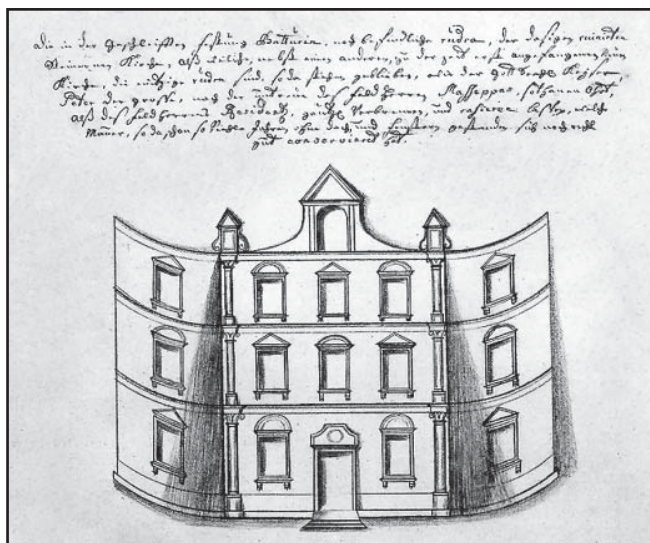 Die in der geschleifften Festung Batturin, noch befindliche rudera, der dasigen ruinirten
steinernen Kirche, alß welche, nebst einer anderen, zu der Zeit erst angefangenen
Kirche, die eintzige rudera sind, so da stehen geblieben, als der Kayser,
Peter der grosse, nach der untreue des Feldherren Masseppas, sothanen Ohrt,
alß des Feldherrens Residentz, verbrennen, und rasiren lassen, welche
Mauer, so da schon so viele Jahren ohne dach, und fenstern gestanden sich noch recht
gut conserviret hat.